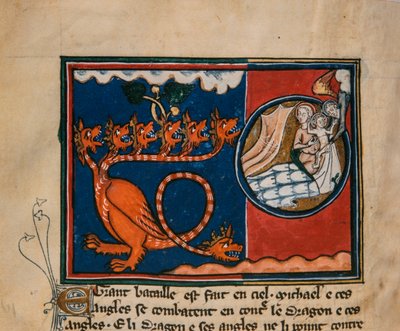 Grant bataille est fait en ciel. Michael e ces
Angles se combatent en cont' le Dragon e ces
Angles. E li Dragon e ses angles ne li point contre